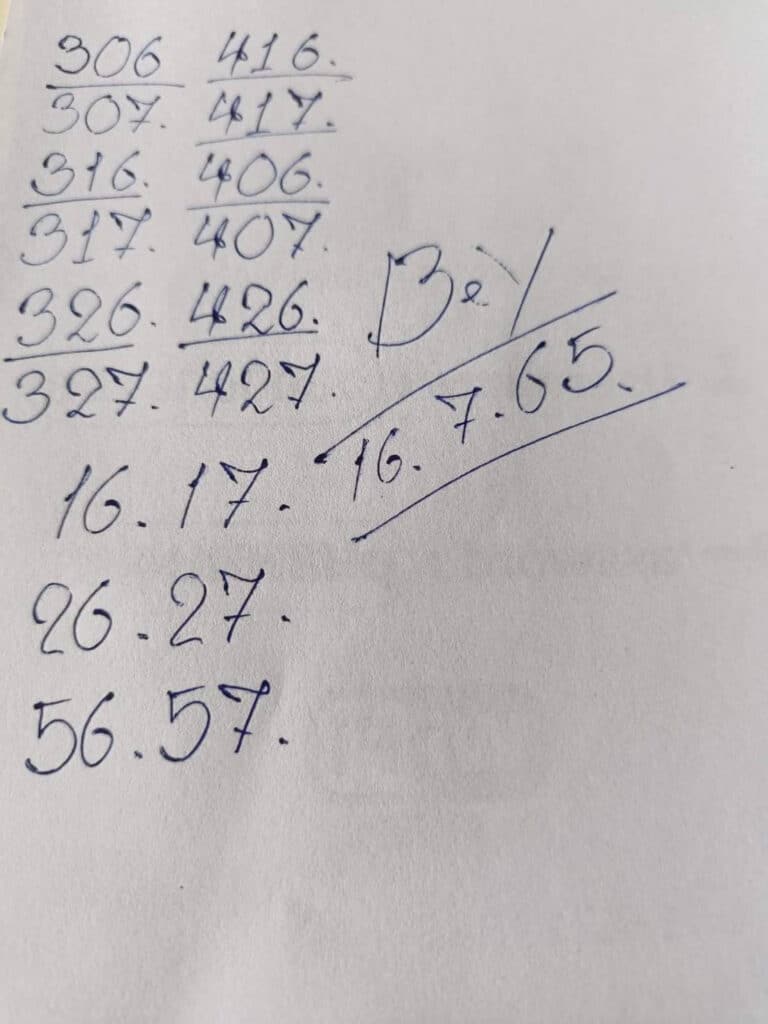 306 416.
307. 417.
316. 406.
317. 407.
326. 426.
327. 427.
16. 7. 65.
16. 17.
26. 27.
56. 57.